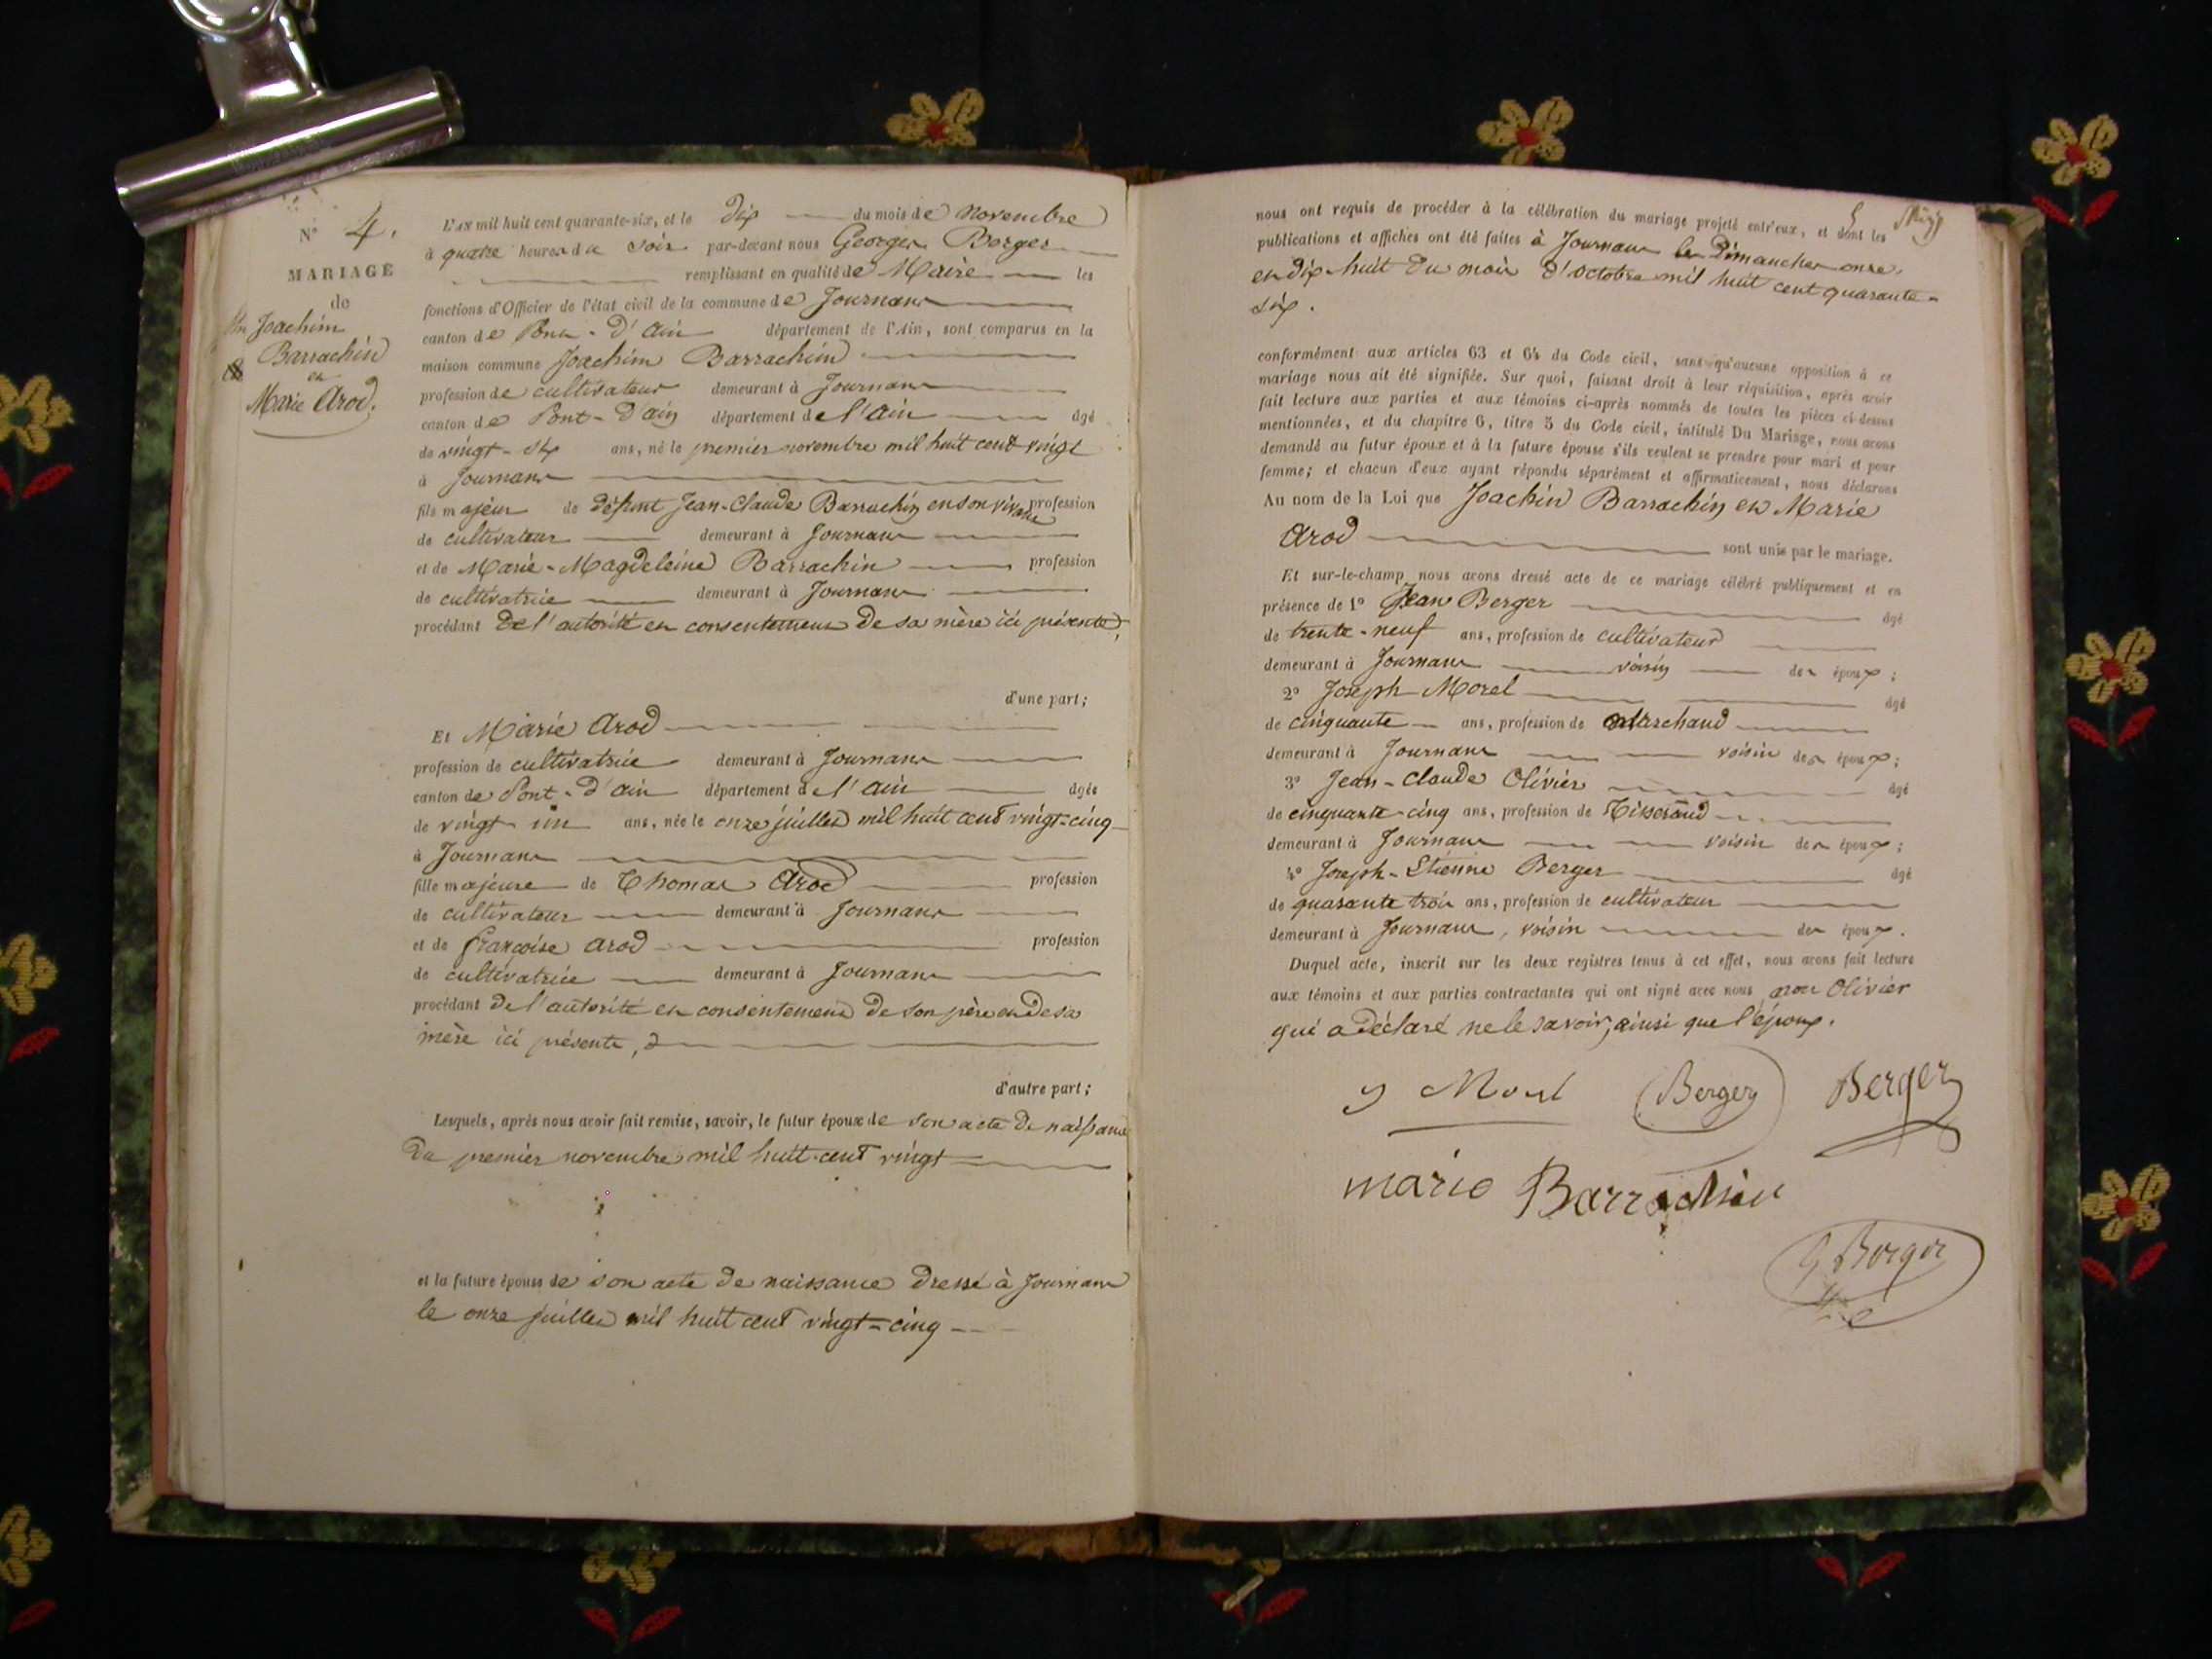 N° 4.
MARIAGE
de
Joachim
Barrachin
et
Marie Arod.
L'AN mil huit cent quarante-six, et le dix du mois de Novembre
à quatre heures du soir par-devant nous Georges Berger
remplissant en qualité de Maire les
fonctions d'Officier de l'état civil de la commune de Journans
canton de Pont-d'ain département de l'Ain, sont comparus en la
maison commune Joachim Barrachin
profession de cultivateur demeurant à Journans
canton de Pont-d'ain département de l'ain âgé
de vingt-six ans, né le premier novembre mil huit cent vingt
à Journans
fils majeur de défunt Jean-Claude Barrachin en son vivant profession
de cultivateur demeurant à Journans
et de Marie-Magdeleine Barrachin profession
de cultivatrice demeurant à Journans
procédant de l'autorité et consentement de sa mère ici présente,
d'une part;
Et Marie Arod
profession de cultivatrice demeurant à Journans
canton de Pont-d'ain département de l'ain âgée
de vingt-un ans, née le onze juillet mil huit cent vingt-cinq
à Journans
fille majeure de Thomas Arod profession
de cultivateur demeurant à Journans
et de françoise arod profession
de cultivatrice demeurant à Journans
procédant de l'autorité et consentement de son père et de sa
mère ici présente,
d'autre part;
Lesquels, après nous avoir fait remise, savoir, le futur époux de son acte de naissance
du premier novembre mil huit-cent vingt
et la future épouse de son acte de naissance dressé à Journans
le onze juillet mil huit cent vingt-cinq
nous ont requis de procéder à la célébration du mariage projeté entr'eux, et dont les
publications et affiches ont été faites à Journans les Dimanches onze
et dix-huit du mois d'Octobre mil huit cent quarante-
six.
conformément aux articles 63 et 64 du Code civil, sans qu'aucune opposition à ce
mariage nous ait été signifiée. Sur quoi, faisant droit à leur réquisition, après avoir
fait lecture aux parties et aux témoins ci-après nommés de toutes les pièces ci-dessus
mentionnées, et du chapitre 6, titre 5 du Code civil, intitulé Du Mariage, nous avons
demandé au futur époux et à la future épouse s'ils veulent se prendre pour mari et pour
femme; et chacun d'eux ayant répondu séparément et affirmativement, nous déclarons
Au nom de la Loi que Joachin Barrachin et Marie
Arod sont unis par le mariage.
Et sur-le-champ nous avons dressé acte de ce mariage célébré publiquement et en
présence de 1° Jean Berger âgé
de trente-neuf ans, profession de cultivateur
demeurant à Journans voisin des époux;
2° Joseph Morel âgé
de cinquante ans, profession de Marchand
demeurant à Journans voisin des époux;
3° Jean-Claude Olivier âgé
de cinquante-cinq ans, profession de Tisserand
demeurant à Journans voisin des époux;
4° Joseph-Etienne Berger âgé
de quarante trois ans, profession de cultivateur
demeurant à Journans, voisin des époux.
Duquel acte, inscrit sur les deux registres tenus à cet effet, nous avons fait lecture
aux témoins et aux parties contractantes qui ont signé avec nous, non Olivier
qui a déclaré ne le savoir, ainsi que l'époux.
Berger Berger
marie Barrachin
G Berger